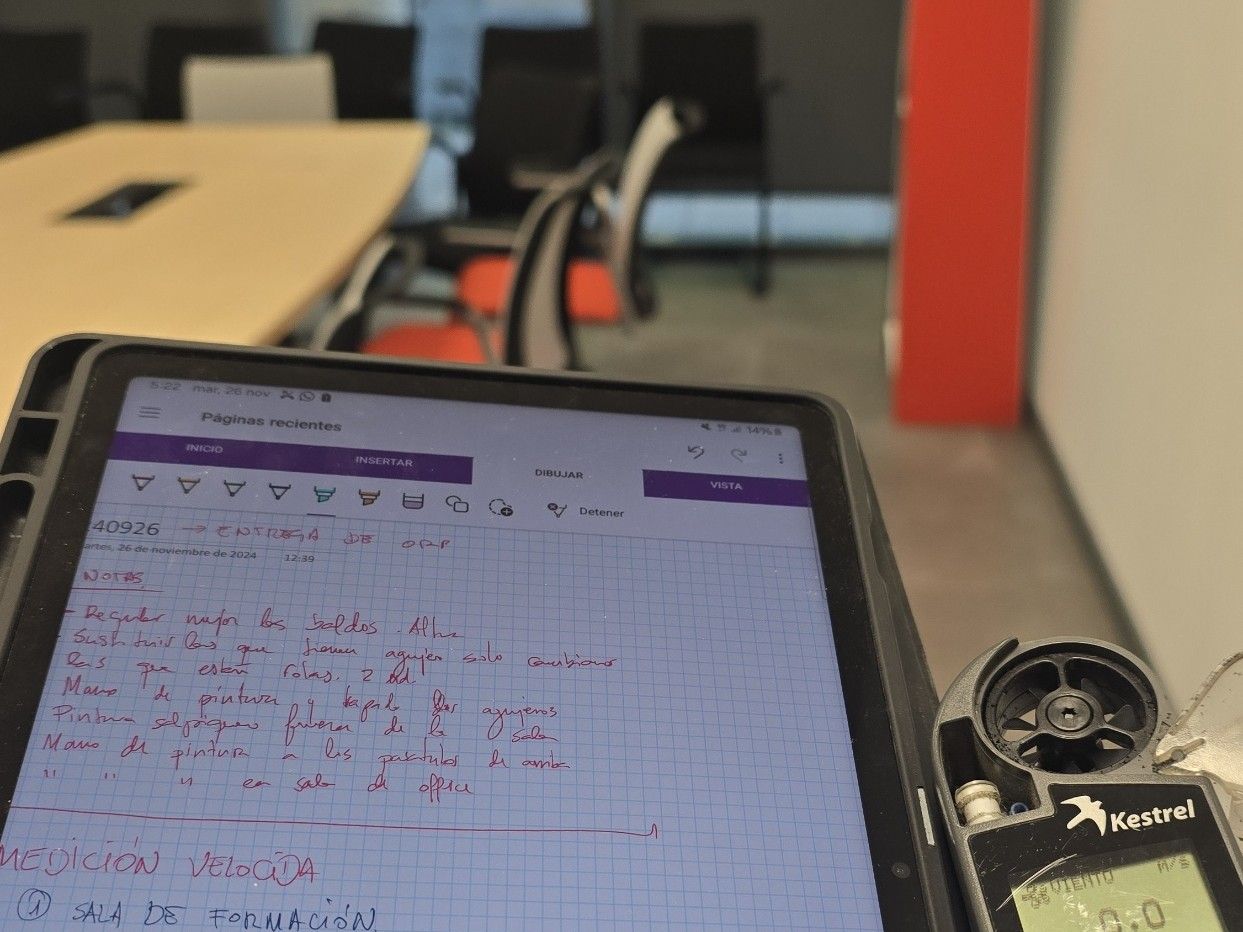 5:22 mar, 26 nov
14%
Páginas recientes
INICIO
INSERTAR
DIBUJAR
VISTA
Detener
40926 → ENTREGA DE
artes, 26 de noviembre de 2024 12:39
NOTAS
- Regular mejor los baldos. Altura
- Sustituir los que tienen agujero solo cambiamos
las que estén rotas. 2 ud.
Mano de pintura y tapado los agujeros
Pintura salpiquero fuera de la sala
Mano de pintura a las de arriba
" " " en sala de office
MEDICIÓN VELOCIDA
① SALA DE FORMACIÓN.
Kestrel
VIENTO M/S
0.0